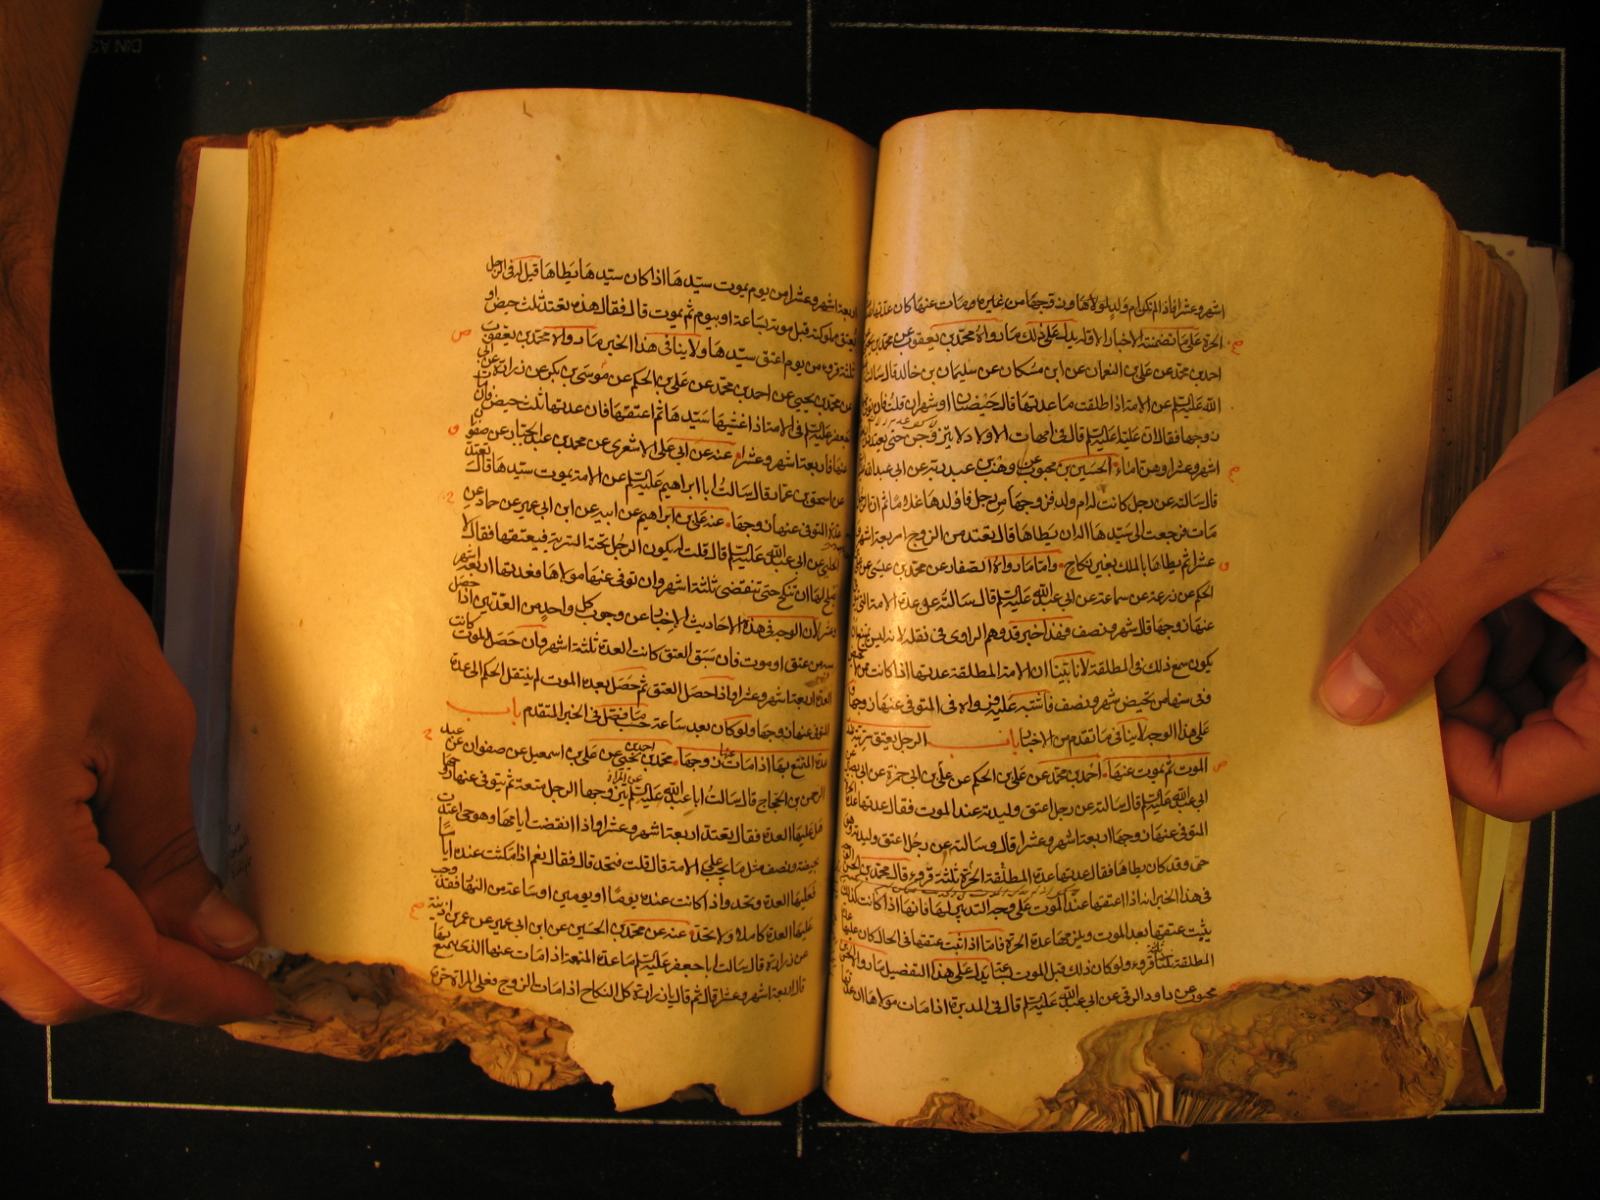 اشهر وعشرا فاذا لم تكن ام ولد لمولاها وزوجها من غيره ومات عنها كان عدتها
الحرة على ما تضمنته الاخبار الاولة يدل على ذلك ما رواه محمد بن يعقوب عن محمد بن
احمد بن محمد عن علي بن النعمان عن ابن مسكان عن سليمان بن خالد قال سالت
الله عليه السلم عن الامة اذا طلقت ما عدتها قال حيضتان او شهران قلت فان توفي
زوجها فقال ان عليا عليه السلم قال في امهات الاولاد لا يتزوجن حتى يعتددن
اشهر وعشرا وهن اماء الحسين بن محبوب عن وهب بن عبد ربه عن ابي عبد الله
قال سالته عن رجل كانت له ام ولد فزوجها من رجل فاولدها غلاما ثم ان الرجل
مات فرجعت الى سيدها اله ان يطاها قال تعتد من الزوج اربعة اشهر
عشرا ثم يطاها بالملك بغير نكاح واما ما رواه الصفار عن محمد بن عيسى عن
الحكم عن زرعة عن سماعة عن ابي عبد الله عليه السلم قال سالته عن عدة الامة
عنها زوجها قال شهر ونصف فهذا خبر قد وهم الراوي في نقله لانه ليس يمتنع ان
يكون سمع ذلك في المطلقة لانا بينا ان الامة المطلقة عدتها اذا كانت من
وفي سنها من تحيض شهر ونصف فاشتبه عليه فرواه في المتوفى عنها زوجها
على هذا الوجه لا ينافي ما تقدم من الاخبار باب الرجل يعتق سريته
الموت ثم يموت عنها احمد بن محمد عن علي بن الحكم عن علي بن ابي حمزة عن ابي بصير
ابي عبد الله عليه السلم قال سالته عن رجل اعتق وليدته عند الموت فقال عدتها
المتوفى عنها زوجها اربعة اشهر وعشرا قال وسالته عن رجل اعتق وليدته وهو
حي وقد كان يطاها فقال عدتها عدة المطلقة الحرة ثلثة قروء قال محمد بن الحسن
في هذا الخبر انه اذا اعتقها عند الموت على وجه التدبير لها فانها اذا كانت كذلك
يثبت عتقها بعد الموت ويلزمها عدة الحرة فاما اذا ثبت عتقها في الحال كان عليها
المطلقة ثلثة قروء ولو كان ذلك قبل الموت بساعة يدل على هذا التفصيل ما رواه الحسن
محبوب عن داود الرقي عن ابي عبد الله عليه السلم قال في المدبرة اذا مات مولاها ان عدتها
اربعة اشهر وعشرا من يوم يموت سيدها اذا كان سيدها يطاها قيل له فالرجل
يعتق مملوكته قبل موته بساعة او بيوم ثم يموت قال فقال هذه تعتد ثلث حيض او
ثلثة قروء من يوم اعتق سيدها ولا ينافي هذا الخبر ما رواه محمد بن يعقوب
عن محمد بن يحيى عن احمد بن محمد عن علي بن الحكم عن موسى بن بكر عن زرارة عن ابي
جعفر عليه السلم في الامة اذا غشيها سيدها ثم اعتقها فان عدتها ثلث حيض فان مات
عنها فاربعة اشهر وعشرا عنه عن ابي علي الاشعري عن محمد بن عبد الجبار عن صفوان
عن اسحق بن عمار قال سالت ابا ابراهيم عليه السلم عن الامة يموت سيدها قال تعتد
عدة المتوفى عنها زوجها عنه عن علي بن ابراهيم عن ابيه عن ابن ابي عمير عن حماد عن
الحلبي عن ابي عبد الله عليه السلم قال قلت له يكون الرجل تحته السرية فيعتقها فقال لا
يصلح لها ان تنكح حتى تنقضي ثلثة اشهر وان توفي عنها مولاها فعدتها اربعة اشهر
وعشر لان الوجه في هذه الاحاديث الاخبار عن وجوب كل واحد من العدتين اذا حصل
سببه عتق او موت فان سبق العتق كانت العدة ثلثة اشهر وان حصل الموت كانت
العدة اربعة اشهر وعشرا واذا حصل العتق ثم حصل بعده الموت لم ينتقل الحكم الى عدة
المتوفى عنها زوجها ولو كان بعد ساعة حسب ما فصل في الخبر المتقدم باب
عدة المتمتع بها اذا مات عنها زوجها محمد بن يحيى عن احمد بن علي بن اسمعيل عن صفوان عن عبد
الرحمن بن الحجاج قال سالت ابا عبد الله عليه السلم عن المراة يتزوجها الرجل متعة ثم يتوفى عنها زوجها
هل عليها العدة فقال تعتد اربعة اشهر وعشرا واذا انقضت ايامها وهو حي اعتدت
بحيضة ونصف مثل ما يجب على الامة قال قلت فتحد قال فقال نعم اذا مكثت عنده اياما
فعليها العدة وتحد واذا كانت عنده يوما او يومين او ساعة من النهار فقد وجب
عليها العدة كاملة ولا تحد عنه عن محمد بن الحسين عن ابن ابي عمير عن عمر بن اذينة
عن زرارة قال سالت ابا جعفر عليه السلم ما عدة المتعة اذا مات عنها الذي يتمتع بها
قال اربعة اشهر وعشرا قال ثم قال يا زرارة كل النكاح اذا مات الزوج فعلى المراة حرة